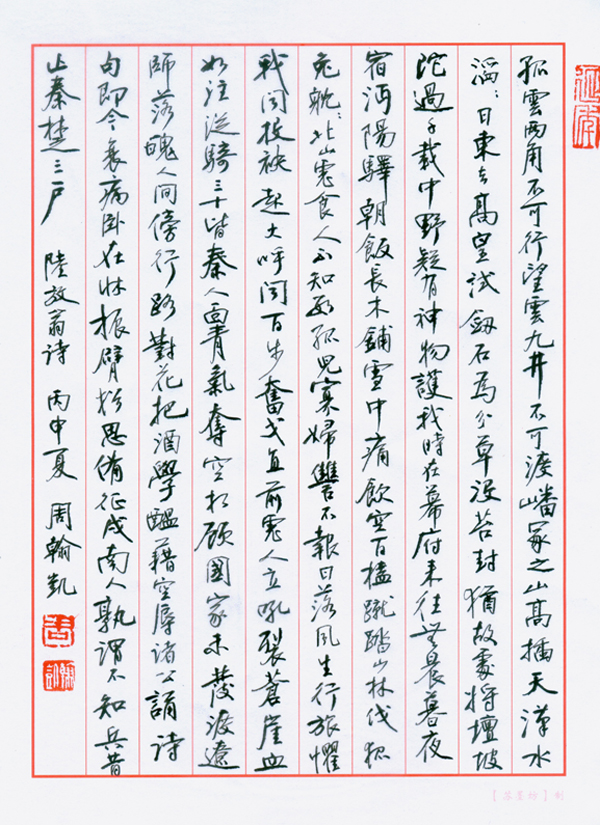 孤雲兩角不可行望雲九井不可渡嶓冢之山高插天漢水
滔:日東去高皇試劍石為分草沒苔封猶故處將壇坡
陀過千載中野疑有神物護我時在幕府來往無晨暮夜
宿沔陽驛朝飯長木鋪雪中痛飲空百榼蹴踏山林伐狐
兔眈:北山虎食人不知數孤兒寡婦讎不報日落風生行旅懼
我聞投袂起大呼聞百步奮戈直前虎人立吼裂蒼崖血
如注從騎三十皆秦人面青氣奪空相顧國家未發渡遼
師落魄人間傍行路對花把酒學醞藉空辱諸公誦詩
句即今衰病臥在牀振臂猶思備征戍南人孰謂不知兵昔
亡秦楚三戶 陸放翁诗 丙申夏 周翰凱